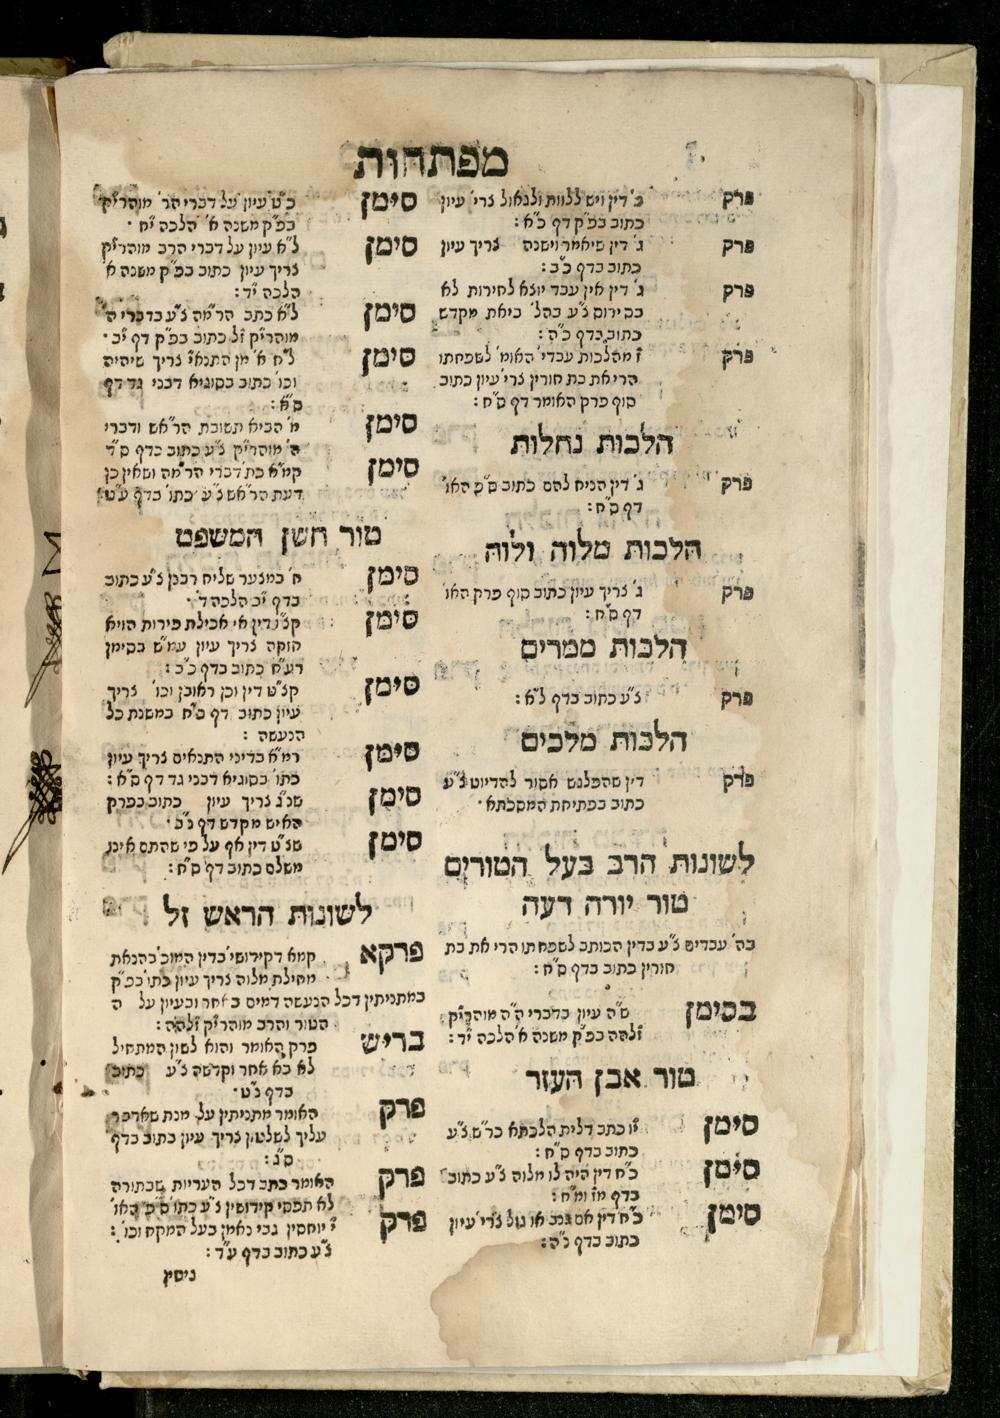 מפתחות
פרק ב' דין ויש ללוות ולגאול צרי' עיון
כתוב בפ"ק דף כ"א:
פרק ג' דין שיאמר וישנה צריך עיון
כתוב בדף כ"ב:
פרק ג' דין אין עבד יוצא לחירות לא
בסירוס צ"ע בהל' ביאת מקדש
כתוב בדף כ"ה:
פרק ז' מהלכות עבדי' האומ' לשפחתו
הרי את בת חורין צרי' עיון כתוב
סוף פרק האומר דף ס"ח:
הלכות נחלות
פרק ג' דין הניח להם כתוב ס"פ האו'
דף ס"ח:
הלכות מלוה ולוה
פרק ג' צריך עיון כתוב סוף פרק האו'
דף ס"ח:
הלכות ממרים
פרק צ"ע כתוב בדף ל"א:
הלכות מלכים
פרק דין שהפלגש אסור להדיוט צ"ע
כתוב בפתיחת המסכתא·
לשונות הרב בעל הטורים
טור יורה דעה
בה' עבדים צ"ע בדין הכותב לשפחתו הרי את בת
חורין כתוב בדף ס"ח:
בסימן ש"ה עיון בדברי ה"ה מוהרי"ק
זלהה בפ"ק משנה א' הלכה י"ד:
טור אבן העזר
סימן י"ו כתב דלית הלכתא כר"ש צ"ע
כתוב בדף ס"ח:
סימן כ"ח דין היה לו מלוה צ"ע כתוב
בדף מ"ז ומ"ח:
סימן כ"ח דין אם גנב או גזל צרי' עיון
כתוב בדף נ"ה:
סימן כ"ט עיון על דברי הר' מוהרי"ק
בפ"ק משנה א' הלכה י"ח·
סימן ל"א עיון על דברי הרב מוהרי"ק
צריך עיון כתוב בפ"ק משנה א'
הלכה י"ד:
סימן ל"א כתב הר"מה צ"ע בדברי ה'
מוהרי"ק ז"ל כתוב בפ"ק דף י"ב·
סימן ל"ח א' מן התנאי' צריך שיהיה
וכו' כתוב בסוגיא דבני גד דף
ס"א:
סימן מ' הביא תשובת הר"אש ודברי
ה' מוהרי"ק צ"ע כתוב בדף ס"ד
סימן קמ"א כת' דברי הר"מה ושאין כן
דעת הר"אש צ"ע כתו' בדף ע"ט:
טור חשן המשפט
סימן ח' במצער שליח רבנן צ"ע כתוב
בדף י"ב הלכה ד'·
סימן קנ"ג דין אי אכילת פירות הויא
חזקה צריך עיון עמ"ש בסימן
רע"ח כתוב בדף כ"ב:
סימן קנ"ט דין וכן ראובן וכו' צריך
עיון כתוב דף ס"ח במשנת כל
הנעשה:
סימן רמ"א בדיני התנאים צריך עיון
כתו' בסוגיא דבני גד דף ס"א:
סימן שנ"ג צריך עיון כתוב בפרק
האיש מקדש דף נ"ב·
סימן שנ"ט דין אף על פי שהתם אינו
משלם כתוב דף ס"ח:
לשונות הראש זל
פרקא קמא דקידושי' בדין המוכ' בהנאת
מחילת מלוה צריך עיון כתו' בפ"ק
במתניתין דכל הנעשה דמים באחר ובעיון על ה
הטור והרב מוהרי"ק זלהה:
בריש פרק האומר והוא לשון המתחיל
לא בא אחר וקדשה צ"ע כתוב
בדף נ"ט·
פרק האומר מתניתין על מנת שאדבר
עליך לשלטון צריך עיון כתוב בדף
ס"ג:
פרק האומר כתב דכל העריות שבתורה
לא תפסי קידושין צ"ע כתו' ס"פ האו'
פרק י' יוחסין גבי נאמן בעל המקח וכו':
צ"ע כתוב בדף ע"ד:
ניסץ